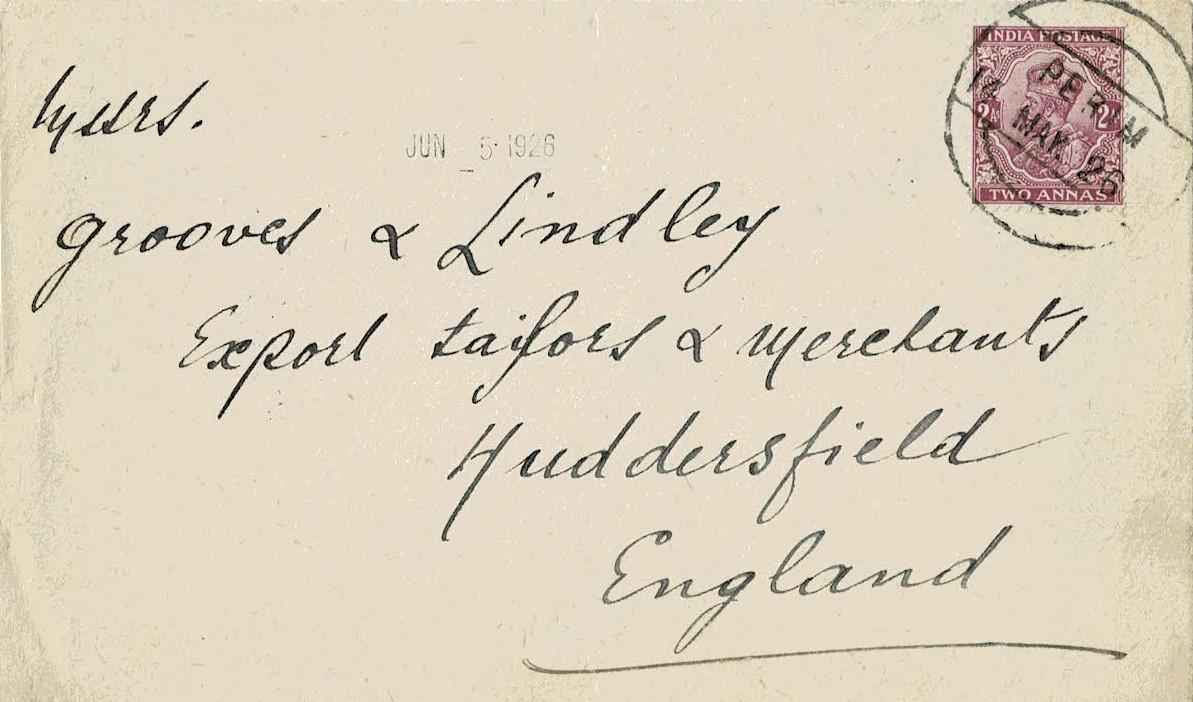 Messrs.
JUN 5 1926
Grooves & Lindley
Export tailors & Merchants
Huddersfield
England
INDIA POSTAGE
2As 2As
TWO ANNAS
PERIM
14 MAY. 26